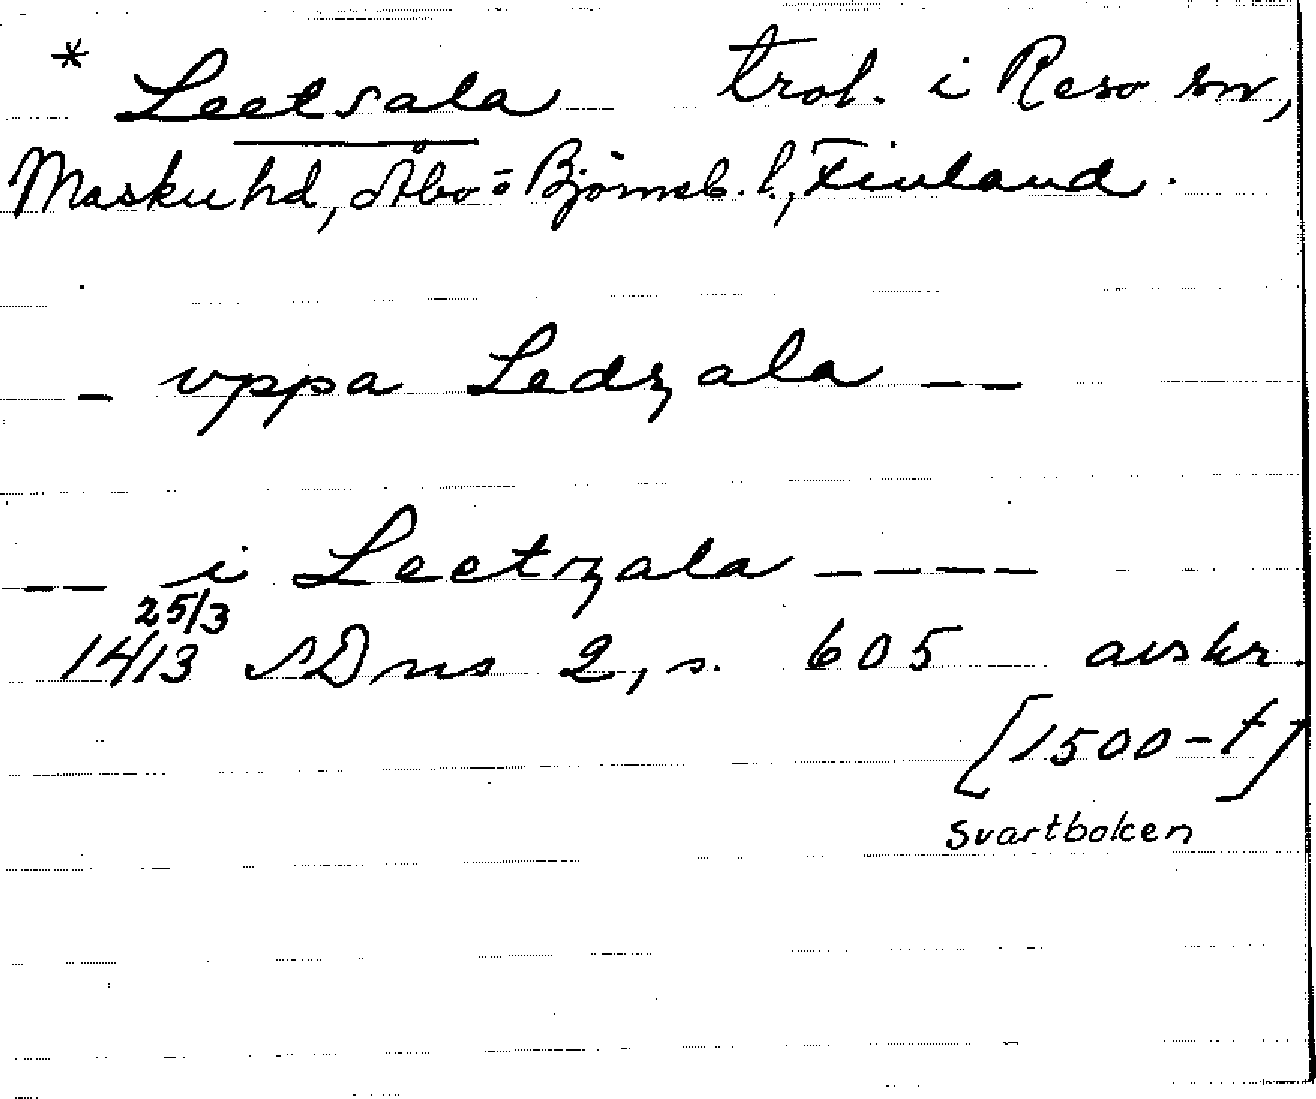 * Leetsala trol. i Reso sn,
Masku hd, Åbo-o Björneb. l., Finland.
– vppa Ledzala – –
– – i Leetzala – – – –
25/3
1413 SDns 2, s. 605 avskr.
[1500-t]
Svartboken